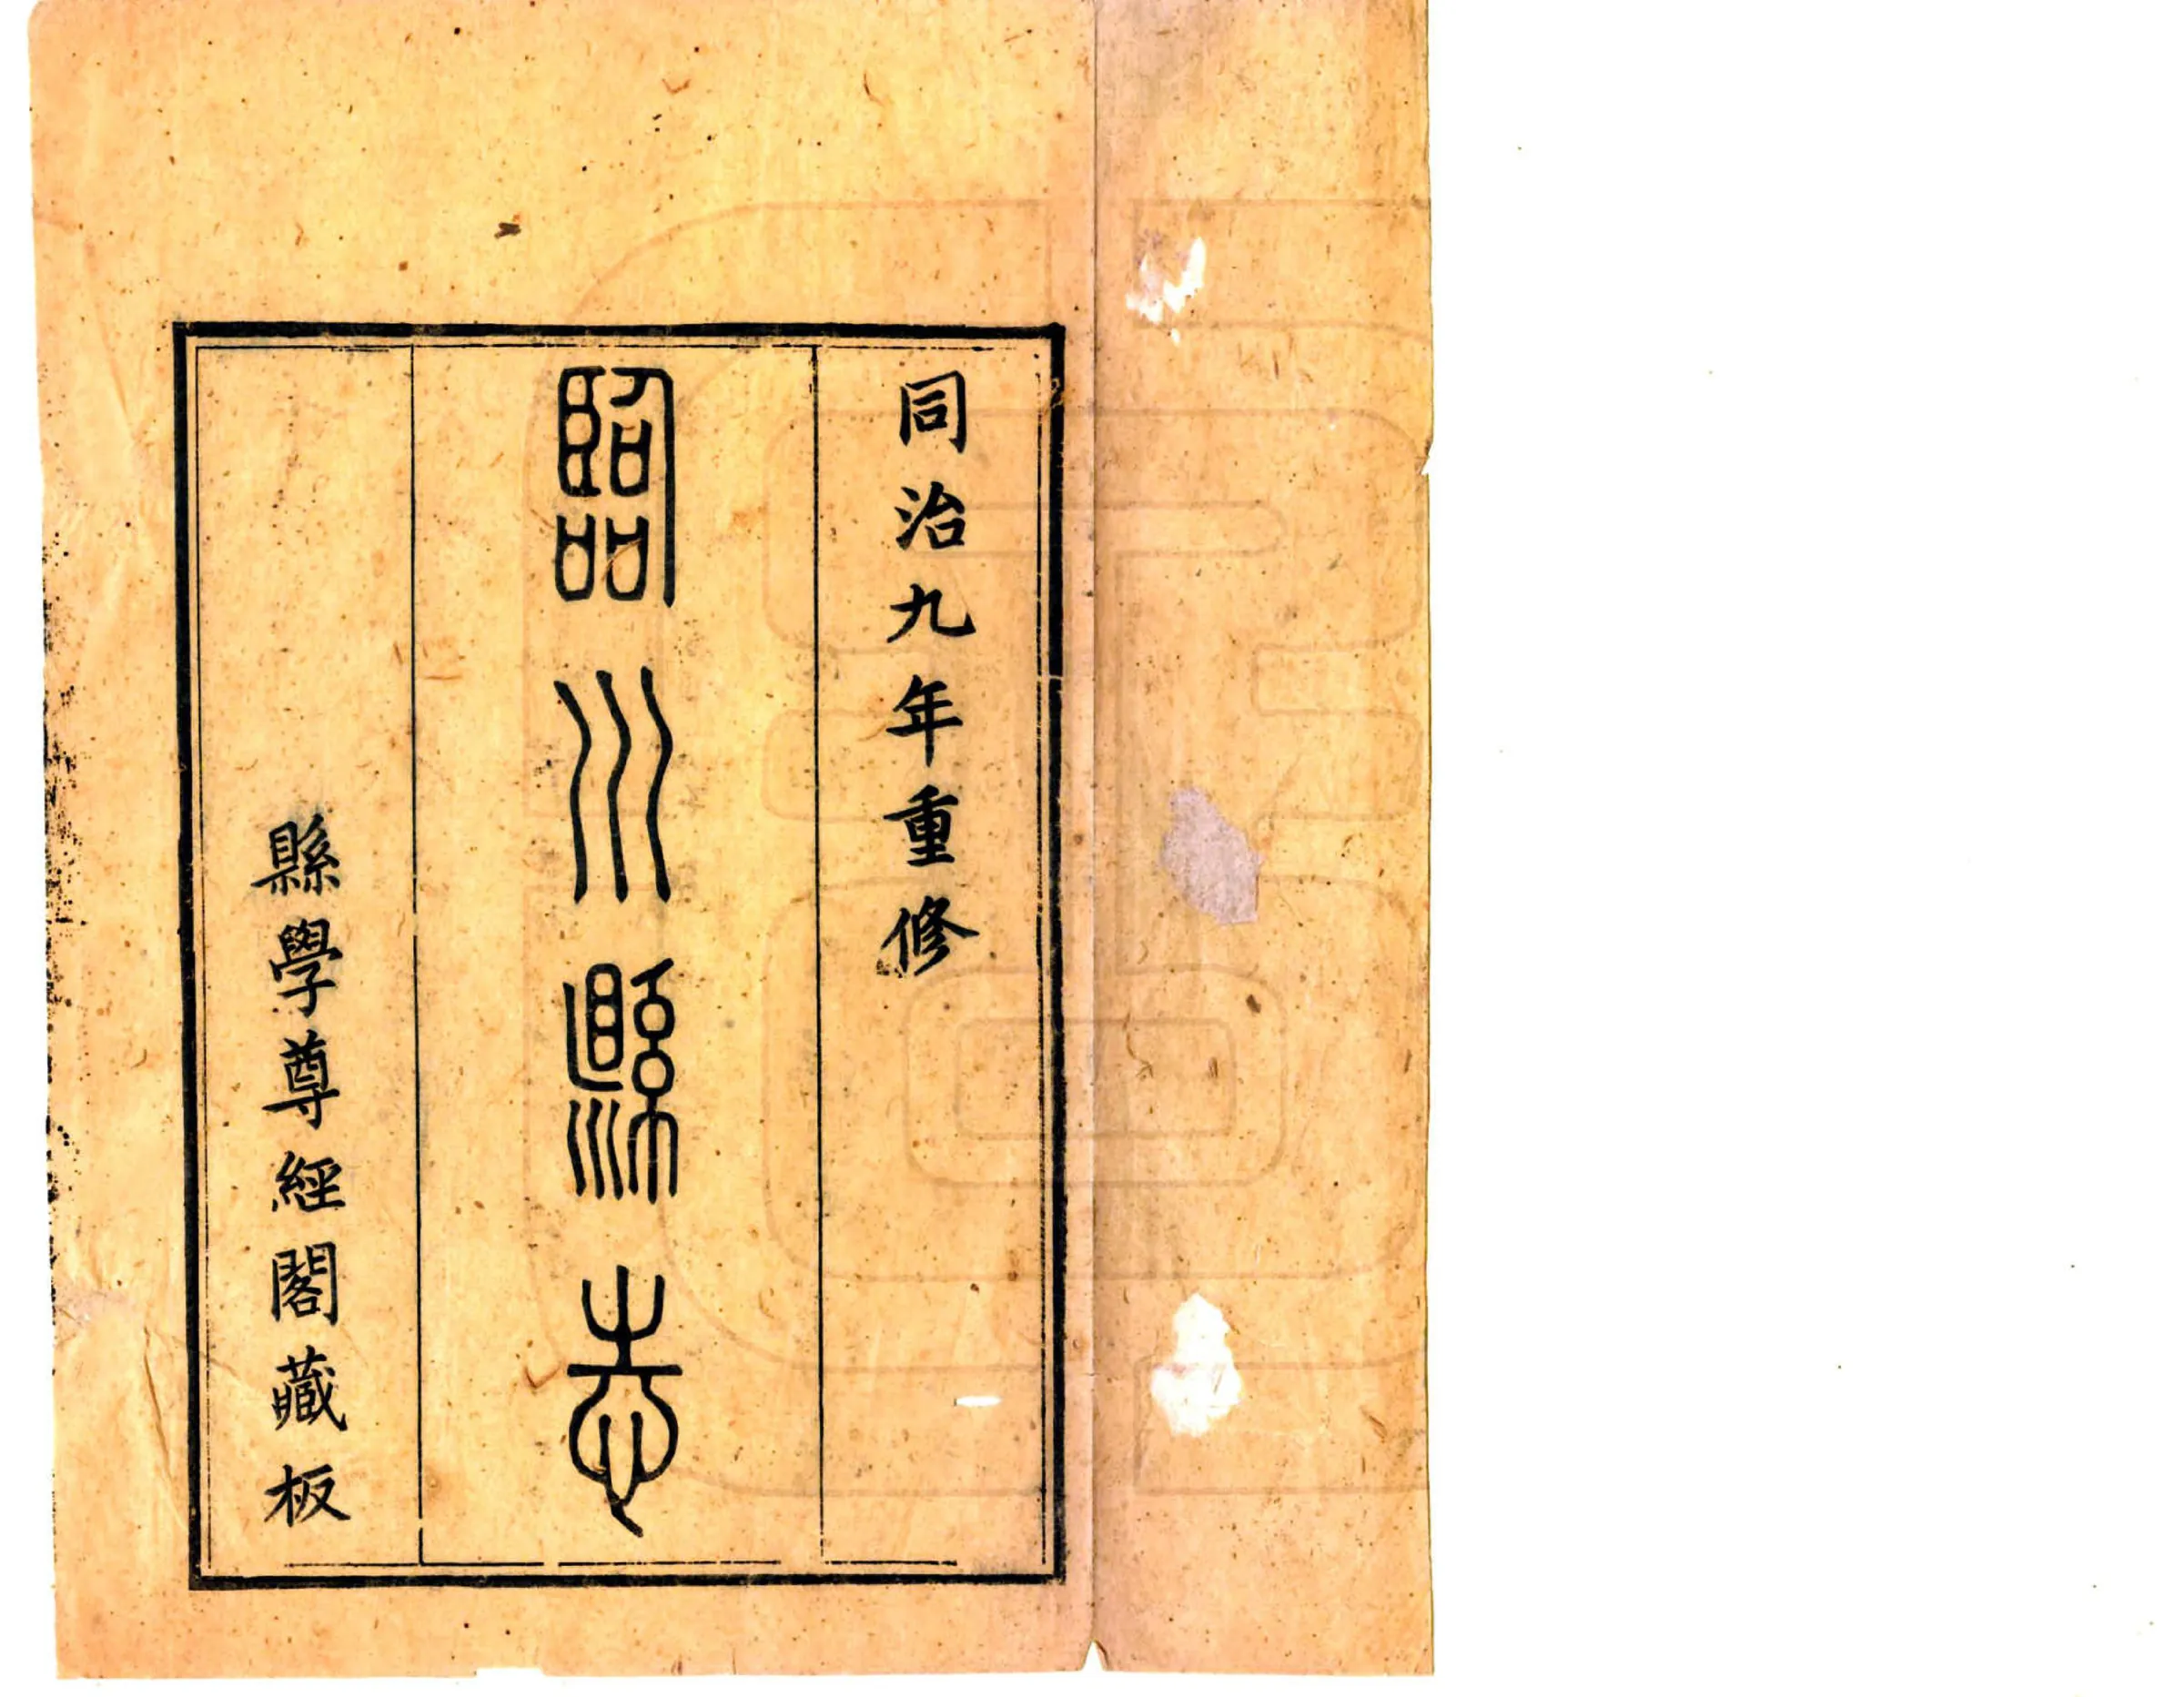 同治九年重修
臨川縣志
縣學尊經閣藏板